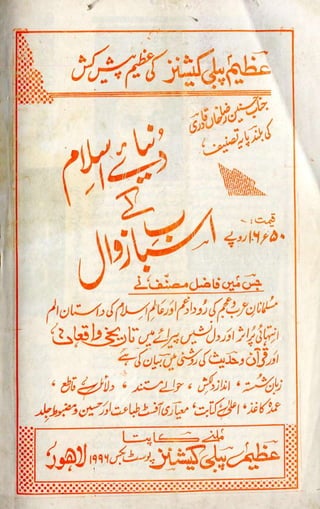 عظیم پبلی کیشنز کی عظیم پیش کش
جناب حسنین رضا خاں قادری
کی بلند پایہ تصنیف
دنیائے اسلام
کے
اسباب زوال
قیمت :-
۱۶٫۵۰ روپے
جس میں فاضل مصنف نے
مسلمانانِ عرب و عجم کی روداد غم اور عالمِ اسلام کی داستانِ الم
انتہائی پُر اثر اور دل نشیں پیرائے میں تاریخی واقعات
اور قرآن و حدیث کی روشنی میں بیان کی ہے
زبان شستہ ، انداز دلکش ، حوالے مستند ، دلائل قاطع ،
عمدہ کاغذ ، اعلیٰ کتابت ، معیاری آفسٹ طباعت اور حسین و مضبوط جلد
ملنے کا پتا
عظیم پبلی کیشنز پوسٹ بکس ۱۹۹۶ لاہور